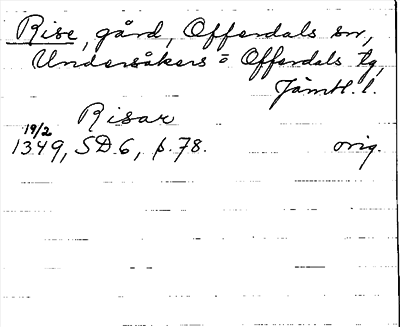 Rise, gård, Offerdals sn,
Undersåkers = Offerdals tg,
Jämtl. l.
Risar
19/2
1349, SD.6, p. 78. orig.